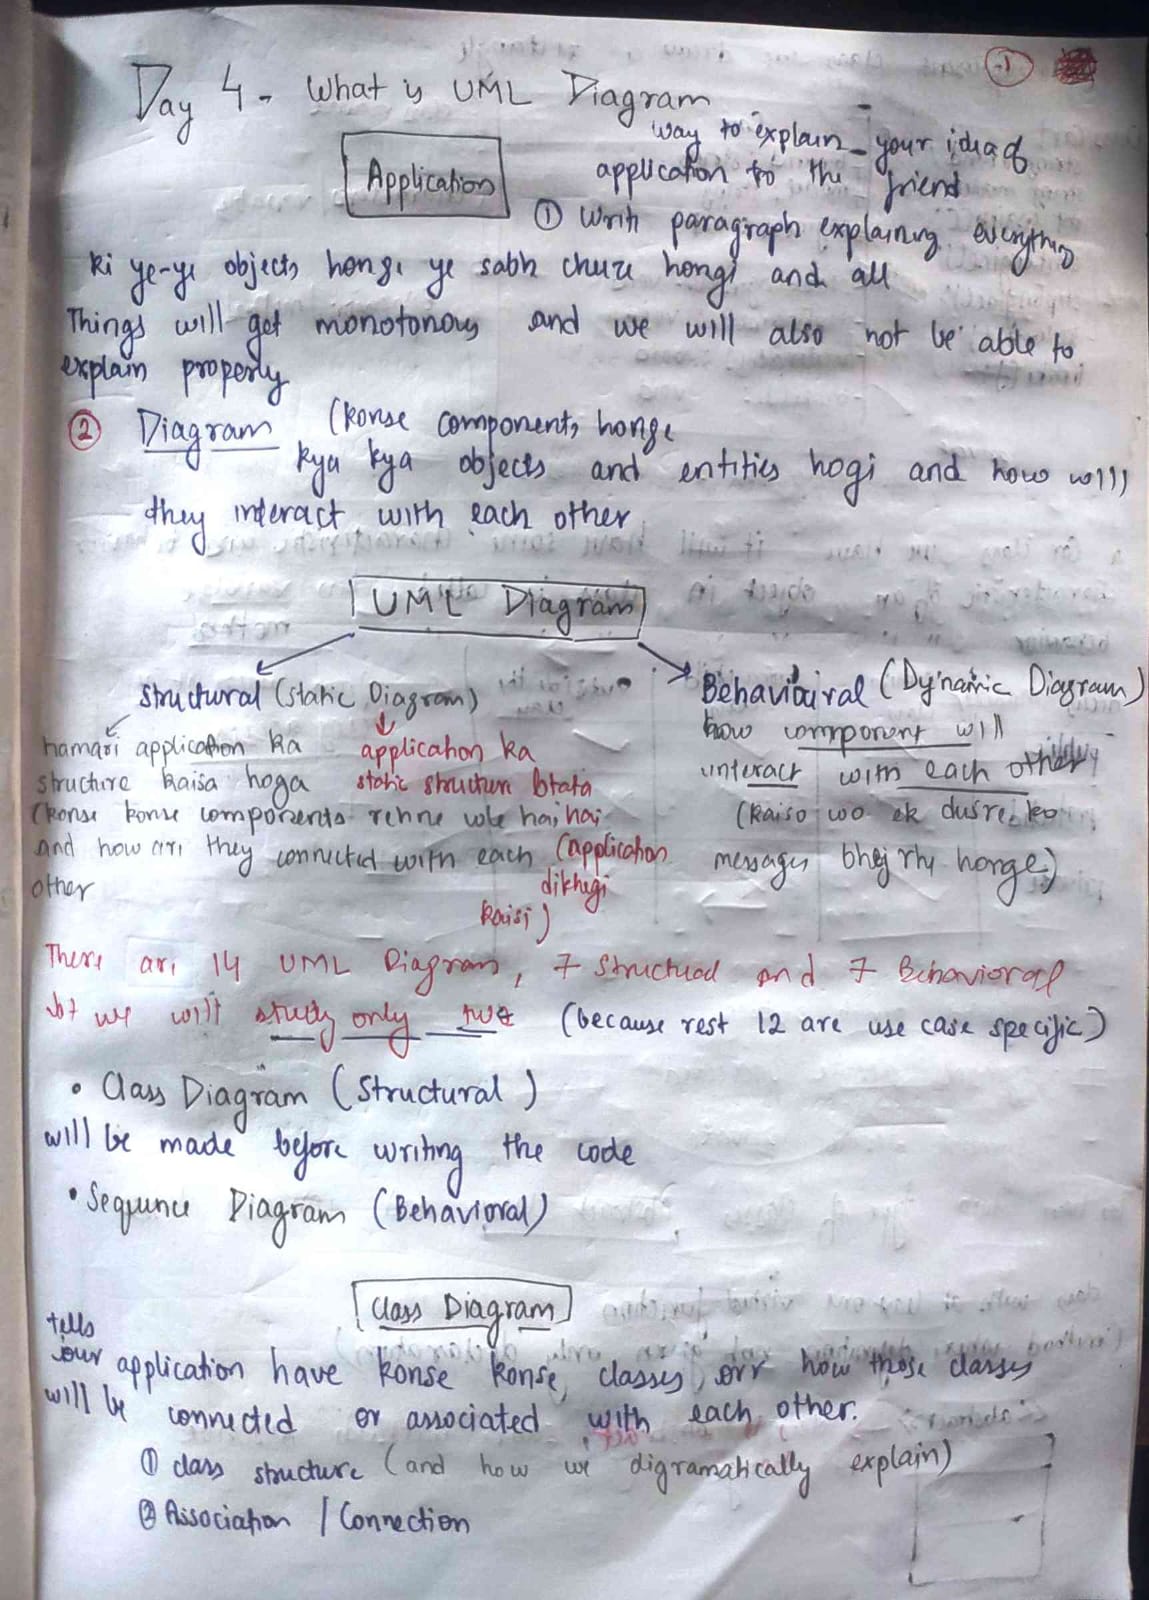 1
Day 4 - What is UML Diagram
Application
way to explain your idea of
application to the friend
① Write paragraph explaining everything
ki ye-ye objects honge ye sabh chize hongi and all
Things will get monotonous and we will also not be able to
explain properly
② Diagram (Konse components honge
kya kya objects and entities hogi and how will
they interact with each other
UML Diagram
Structural (Static Diagram)
hamari application ka
structure kaisa hoga
(konse konse components rehne wle hai
and how are they connected with each
other
application ka
static structure btata
hai
(application
dikhegi
kaisi)
Behavioural (Dynamic Diagram)
how component will
interact with each other
(kaise wo ek dusre ko
messages bhej rhy honge)
There are 14 UML Diagram, 7 Structual and 7 Behavioral
but we will study only two (because rest 12 are use case specific)
• Class Diagram (Structural)
will be made before writing the code
• Sequence Diagram (Behavioral)
Class Diagram
tells
our application have konse konse classes orr how those classes
will be connected or associated with each other.
① class structure (and how we digramatically explain)
② Association / Connection